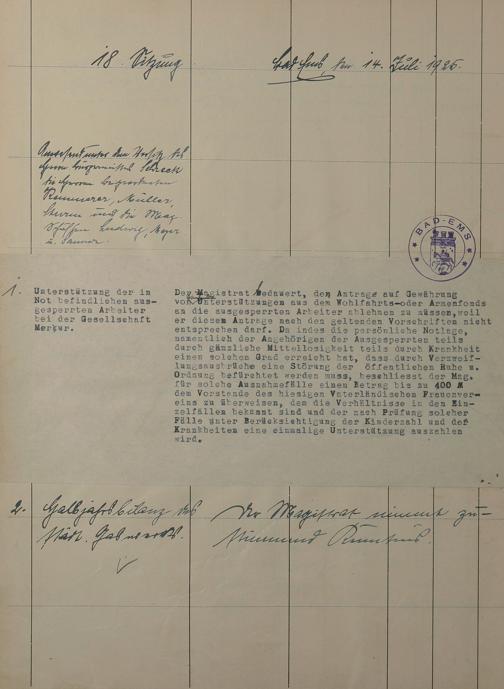 18. Sitzung
Bad Ems, den 14. Juli 1926.
Anwesend unter dem Vorsitz des
Herrn Bürgermeister Schreck
die Herren Beigeordneten
Kemmerer, Müller,
Sturm und die Mag.
Schöffen Ludwig, Meyer
BAD-EMS
1.
Unterstützung der in
Not befindlichen aus-
gesperrten Arbeiter
bei der Gesellschaft
Merkur.
Der Magistrat bedauert, den Antrag auf Gewährung
von Unterstützungen aus dem Wohlfahrts-oder Armenfonds
an die ausgesperrten Arbeiter ablehnen zu müssen, weil
er diesem Antrage nach den geltenden Vorschriften nicht
entsprechen darf. Da indes die persönliche Notlage,
namentlich der Angehörigen der Ausgesperrten teils
durch gänzliche Mittellosigkeit teils durch Krankheit
einen solchen Grad erreicht hat, dass durch Verzweif-
lungsausbrüche eine Störung der öffentlichen Ruhe u.
Ordnung befürchtet werden muss, beschliesst der Mag.
für solche Ausnahmefälle einen Betrag bis zu 400 M
dem Vorstande des hiesigen Vaterländischen Frauenver-
eins zu überweisen, dem die Verhältnisse in den Ein-
zelfällen bekannt sind und der nach Prüfung solcher
Fälle unter Berücksichtigung der Kinderzahl und der
Krankheiten eine einmalige Unterstützung auszahlen
wird.
2.
Halbjahrsbilanz des
städt. Gaswerks.
Der Magistrat nimmt zu-
stimmend Kenntnis.